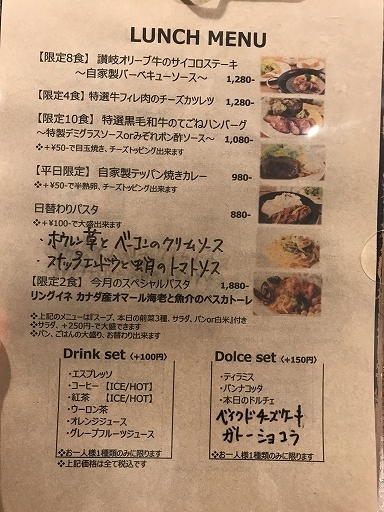 LUNCH MENU
【限定8食】 讃岐オリーブ牛のサイコロステーキ
～自家製バーベキューソース～ 1,280-
【限定4食】特選牛フィレ肉のチーズカツレツ 1,280-
【限定10食】特選黒毛和牛のてごねハンバーグ
～特製デミグラスソースorみぞれポン酢ソース～ 1,080-
※+¥50-で目玉焼き、チーズトッピング出来ます
【平日限定】 自家製テッパン焼きカレー 980-
※+¥50-で半熟卵、チーズトッピング出来ます
日替わりパスタ 880-
※+¥100-で大盛り出来ます
・ホウレン草とベーコンのクリームソース
・スナップエンドウと
のトマトソース
【限定2食】今月のスペシャルパスタ 1,880-
リングイネ カナダ産オマール海老と魚介のペスカトーレ
※上記のメニューは『スープ、本日の前菜3種、サラダ、パンor白米』付き
※サラダ、+250円-で大盛できます
※パン、ごはんの大盛り、お替わり出来ます
Drink set（+100円）
・エスプレッソ
・コーヒー【ICE/HOT】
・紅茶 【ICE/HOT】
・ウーロン茶
・オレンジジュース
・グレープフルーツジュース
※お一人様1種類のみに限ります
※上記価格は全て税込です
Dolce set（+150円）
・ティラミス
・パンナコッタ
・本日のドルチェ
ベイクドチーズケーキ
ガトーショコラ
※お一人様1種類のみに限ります